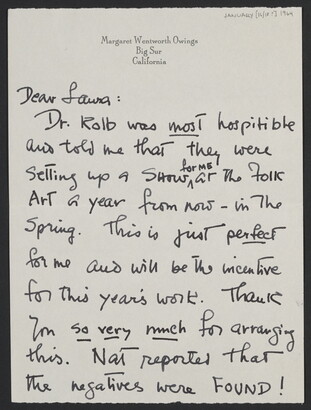 Margaret Wentworth Owings
Big Sur
California
Dear Laura:
Dr. Kolb was most hospitible
and told me that they were
setting up a SHOW for me at the Folk
Art a year from now - in the
Spring. This is just perfect
for me and will be the incentive
for this year's work. Thank
you so very much for arranging
this. Nat reported that
the negatives were FOUND!